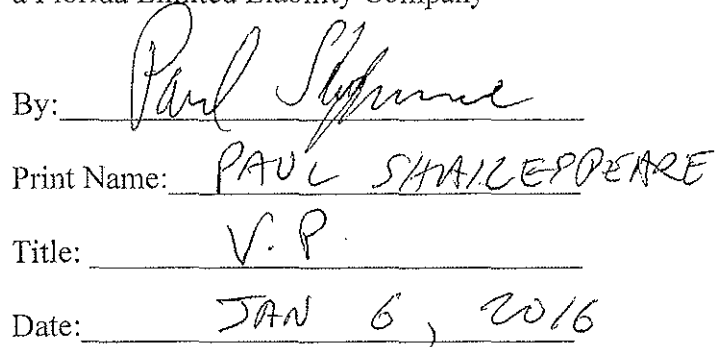 a Florida Limited Liability Company
By: Paul
Print Name: PAUL SHAKESPEARE
Title: V.P.
Date: JAN 6, 2016